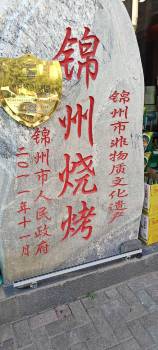 锦州市非物质文化遗产
锦州烧烤
锦州市人民政府
二〇一一年十一月